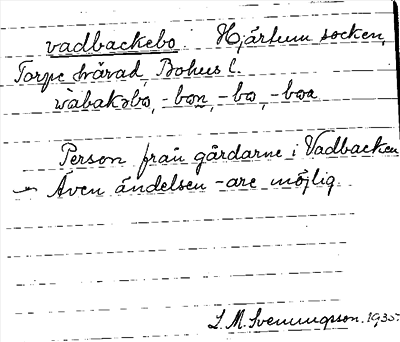 vadbackebo. Hjärtum socken,
Torpe härad, Bohus l.
wàbakəbo, -bon, -bo, -boa
Person från gårdarne i Vadbacken
Även ändelsen -are möjlig.
S. M. Svenungsson. 1935.